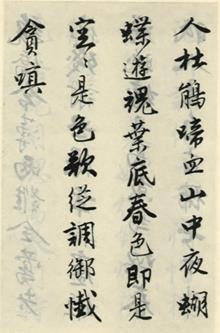 人杜鵑啼血山中夜蝴
蝶遊魂葉底春色即是
空〻是色歌從調御懺
貪嗔